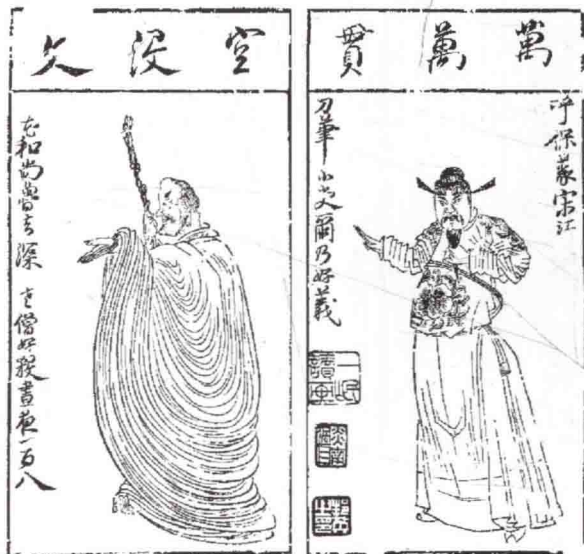 萬萬貫
呼保義宋江
刀筆小吏爾乃好義
空沒文
花和尚魯智深 老僧好殺晝夜一百八